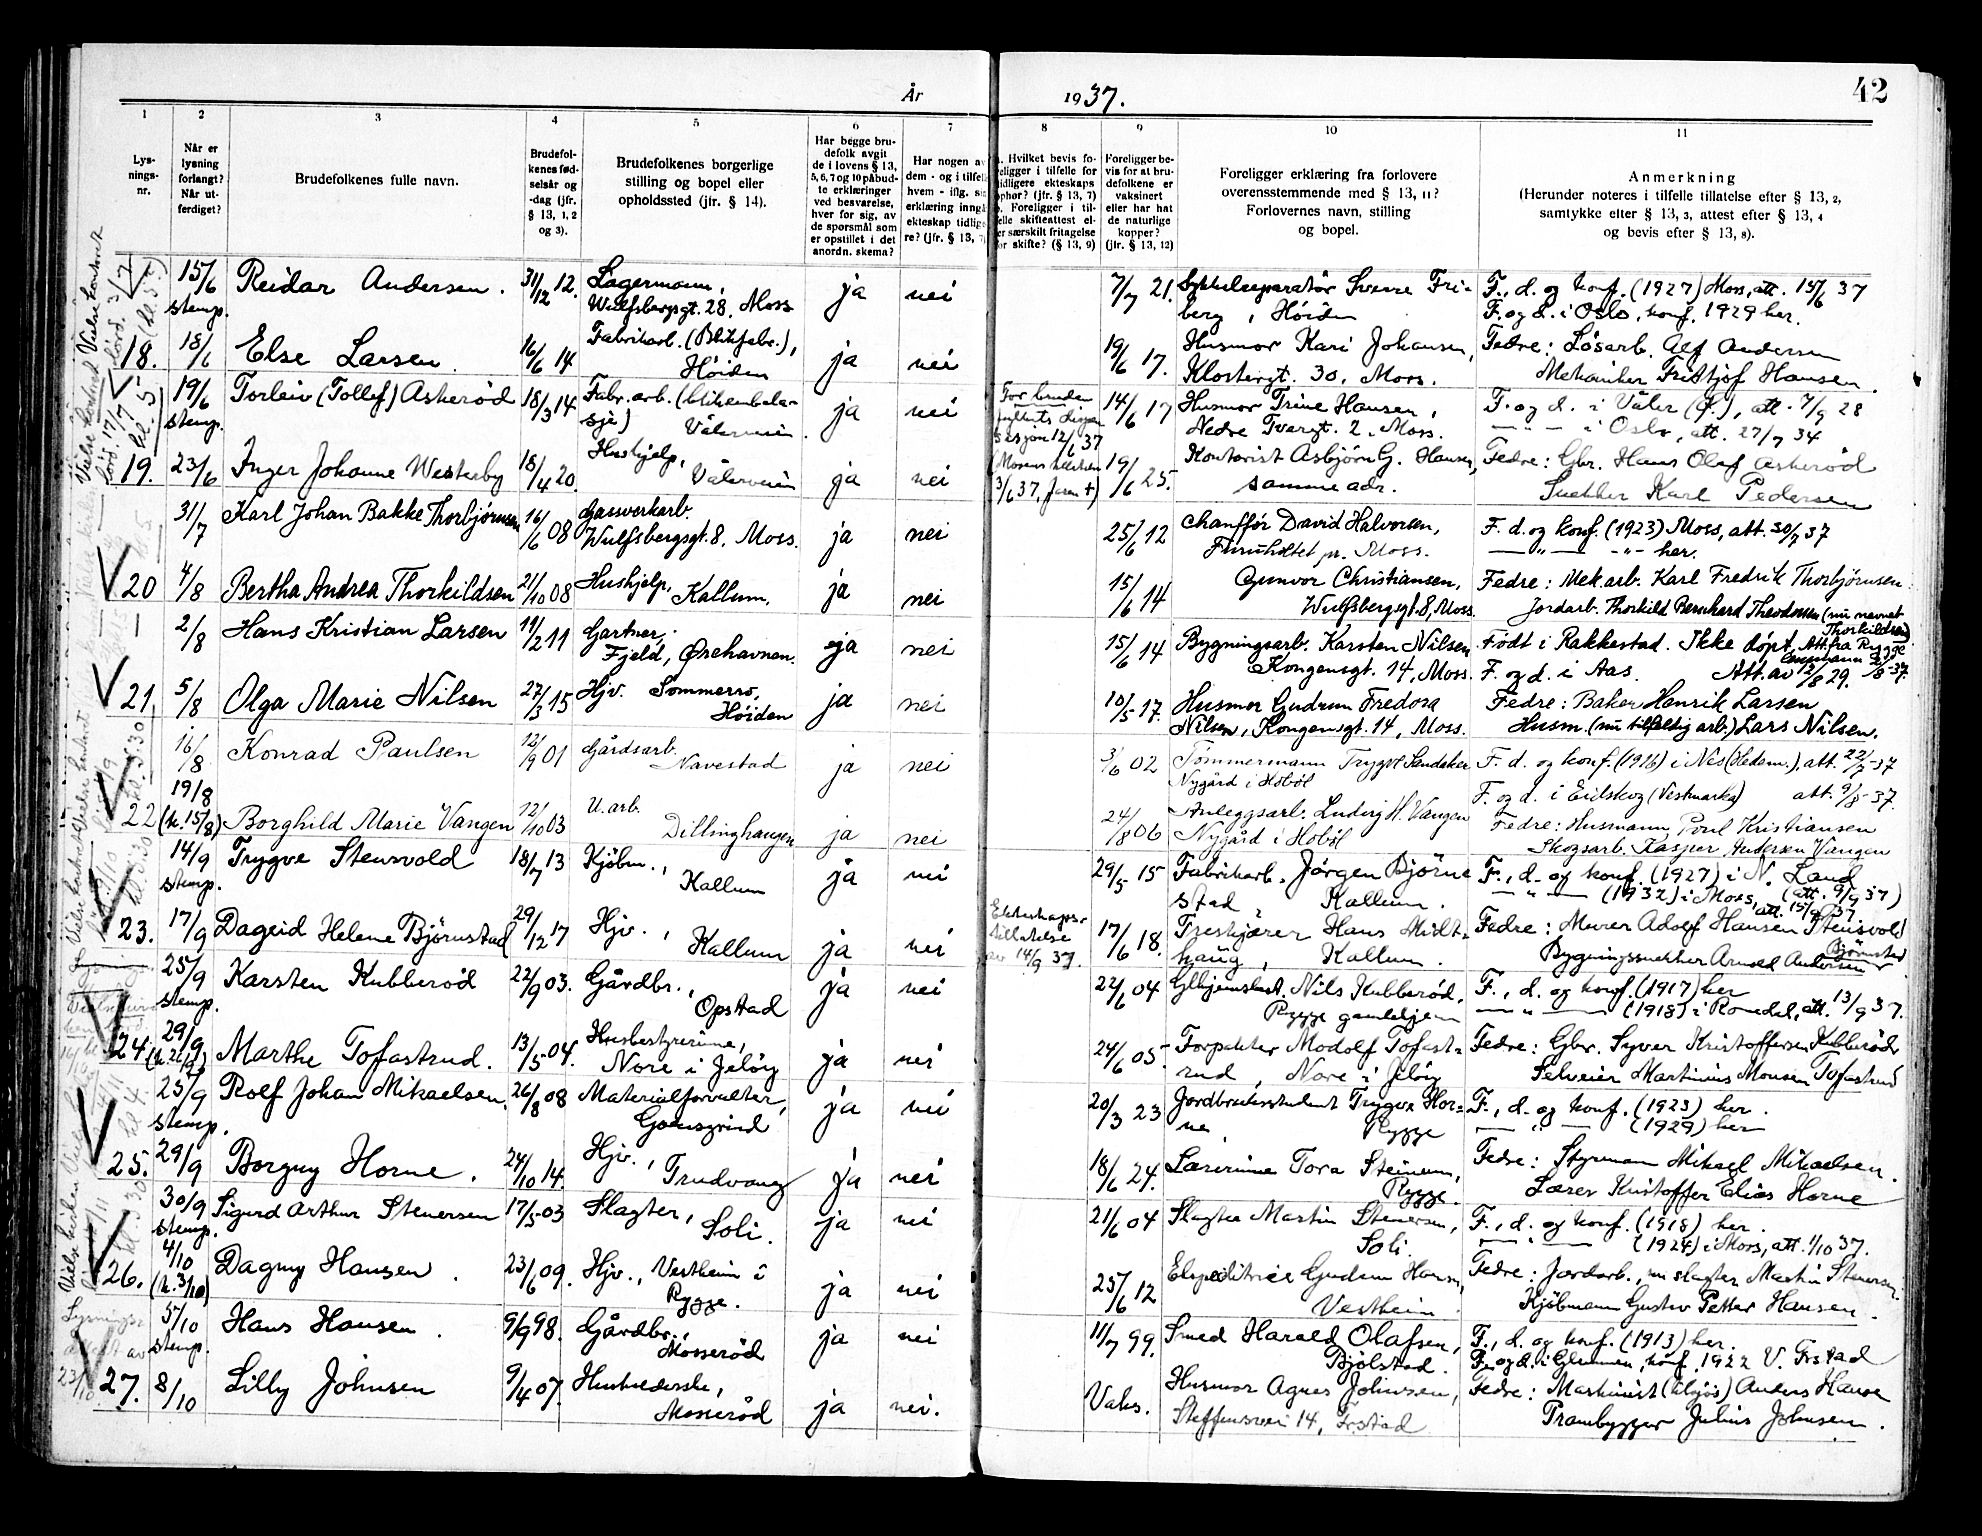 År 1937. 42
1 2 3 4 5 6 7 8 9 10 11
Lysnings-
nr.
Når er
lysning
forlangt?
Når ut-
ferdiget?
Brudefolkenes fulle navn.
Brudefol-
kenes fød-
selsår og
-dag (jfr.
§ 13, 1, 2
og 3).
Brudefolkenes borgerlige
stilling og bopel eller
opholdssted (jfr. § 14).
Har begge bru-
defolk avgit
de i lovens § 13,
5, 6, 7 og 10 påbud-
te erklæringer
ved besvarelse,
hver for sig, av
de spørsmål som
er opstillet i det
anordn. skema?
Har nogen av
dem - og i tilfelle
hvem - iflg. sin
erklæring inngå
ekteskap tidlige
re? (jfr. § 13, 7
Hvilket bevis fo-
religger i tilfelle for
tidligere ekteskaps
ophør? (jfr. § 13, 7)
Foreligger i til-
felle skifteattest el-
er særskilt fritagelse
for skifte? (§ 13, 9)
Foreligger be-
vis for at bru-
defolkene er
vaksinert
eller har hat
de naturlige
kopper?
(jfr. § 13, 12)
Foreligger erklæring fra forlovere
overensstemmende med § 13, 11?
Forlovernes navn, stilling
og bopel.
Anmerkning
(Herunder noteres i tilfelle tillatelse efter § 13, 2,
samtykke efter § 13, 3, attest efter § 13, 4
og bevis efter § 13, 8).
15/6 Reidar Andersen. 31/12 12. Lagermann, ja nei 7/7 21. Sykkelreparatör Sverre Fri- F., d. og konf. (1927) Moss, att. 15/6 37
stemp. Wulfsbergsgt. 28, Moss berg, Höiden F. og d. i Oslo, konf. 1929 her.
18. 18/6 Else Larsen 16/6 14 Fabrikarb. (Blikfabr.), ja nei 19/6 17. Husmor Kari Johansen, Fedre: Lösarb. Alf Andersen
Höiden Klostergt. 30, Moss. Mekaniker Fritjof Hansen.
19/6 Torleiv (Tollef) Askeröd 18/3 14 Fabr. arb. (blikembala- ja nei For bruden 14/6 17 Husmor Trine Hansen, F. og d. i Våler (Ø.), att. 7/9 28
stemp. sje) Vålerveien 12/6 37 Nedre Tvergt. 2, Moss. — " — i Oslo, att. 27/7 34
19. 23/6 Inger Johanne Westeby 18/4 20. Hushjelp, ja nei 19/6 25. Kontorist Asbjörn G. Hansen, Fedre: Gbr. Hans Olaf Askeröd
Vålerveien 3/6 37, samme adr. Snekker Karl Pedersen
31/7 Karl Johan Bakke Thorbjørnsen 16/6 08 Gassverkarb. ja nei 25/6 12 Chauffør David Halvorsen, F. d. og konf. (1923) Moss, att. 30/7 37
Wulfsbergsgt. 8, Moss. Furuholtet pr. Moss. — " — - " - her.
20 4/8 Bertha Andrea Thorkildsen 21/10 08 Hushjelp, Kallum. ja nei 15/6 14 Gunvor Christiansen, Fedre: Mek.arb. Karl Fredrik Thorbjørnsen
Wulfsbergsgt. 8, Moss Jordarb. Thorkild Bernhard Theodorsen (nu nevnet
Thorkildsen)
2/8 Hans Kristian Larsen 11/2 11 Gartner, ja nei 15/6 14 Bygningsarb. Karsten Nilsen Født i Rakkestad. Ikke døpt, Att. fra Rygge
Fjeld, Ørehavnen. Kongensgt. 14, Moss. F. og d. i Aas. Att. av 12/8 29.
21. 5/8 Olga Marie Nilsen 27/3 15 Hjv. Sommerro, ja nei 10/5 17. Husmor Gudrun Fredora Fedre: Baker Henrik Larsen
Höiden Nilsen, Kongensgt. 14, Moss. Husm. (nu tilfeldig arb.) Lars Nilsen.
16/8 Konrad Paulsen 12/9 01 Gårdsarb. Navestad ja nei 3/6 02 Tömmermann Trygve Sandaker F. d. og konf. (1916) i Nes (Hedem.), att. 22/7-37
19/8 Nygård i Hobøl F. og d. i Eidskog (Vestmarka) att. 9/8-37.
22 (k. 15/8) Borghild Marie Vangen 12/10 03 U. arb. Dillinghaugen ja nei 24/8 06 Anleggsarb. Ludvig H. Vangen Fedre: Husmann Poul Kristiansen
Nygård i Hobøl Skogsarb. Kasper Andersen Vangen
14/9 Trygve Stensvold 18/7 13 Kjöbm., ja nei 29/5 15 Fabrikarb. Jörgen Björne F., d. og konf. (1927) i N. Land
stemp. Kallum stad, Kallum. — " — (1932) i Moss, (att. 9/9 37)
att. 15/9 37.
23. 17/9 Dagrid Helene Björnstad 29/12 17 Hjv., ja nei Ekteskaps- 17/6 18. Treskjærer Hans Midt- Fedre: Murer Adolf Hansen Stensvold
Kallum tillatelse haug, Kallum. Bygningssnekker Arnold Andersen Björnstad
av 14/9 37.
25/9 Karsten Kubberöd 22/9 03. Gårdbr., ja nei 22/6 04 Nils Kubberöd, F., d. og konf. (1917) her
stemp. Opstad Rygge gamlehjem — " — (1918) i Romedal, att. 13/9 37.
24. 29/9 Marthe Tofastrud. 13/5 04. Husbestyrerinne, ja nei 24/6 05. Forpakter Modolf Tofast- Fedre: Gbr. Syver Kristoffersen Kubberöd
Nore i Jelöy rud, Nore i Jelöy Selveier Martinius Monsen Tofastrud
25/9 Rolf Johan Mikaelsen. 26/8 08 Materialforvalter, ja nei 20/3 23 Jordbruksstudent Trygve Hor- F., d. og konf. (1923) her.
stemp. ne, Rygge — " — (1929) her
25. 29/9 Borgny Horne. 24/10 14. Hjv., Trudvang ja nei 18/6 24. Lærerinne Tora Steinum, Fedre: Styrmann Mikael Mikaelsen.
Rygge. Lærer Kristoffer Elias Horne
30/9 Sigurd Arthur Stenersen 17/5 03 Slagter, ja nei 21/6 04 Slagter Martin Stenersen, F., d. og konf. (1918) her.
stemp. Soli. Soli. — " — (1924) i Moss, att. 1/10 37.
26. 4/10 Dagny Hansen. 23/6 09. Hjv., Vestheim i ja nei 25/6 12 Ekspeditrice Gudrun Hansen, Fedre: Jordarb., nu slagter Martin Stenersen.
(k. 3/10) Rygge. Vestheim. Kjöbmann Gustav Petter Hansen.
5/10 Hans Hansen. 9/9 98. Gårdbr., ja nei 11/7 99. Smed Harald Olafsen, F., d. og konf. (1913) her.
stemp. Mosseröd Bjölstad. F. og d. i Glemmen, konf. 1922 V. Frstad
27. 8/10 Lilly Johnsen 9/4 07. Husholderske, ja nei. Vaks. Husmor Agnes Johnsen, Fedre: Maskinist (tilsjös) Anders Hansen
Mosseröd Steffensvei 14, Fr.stad Prambygger Julius Johnsen.